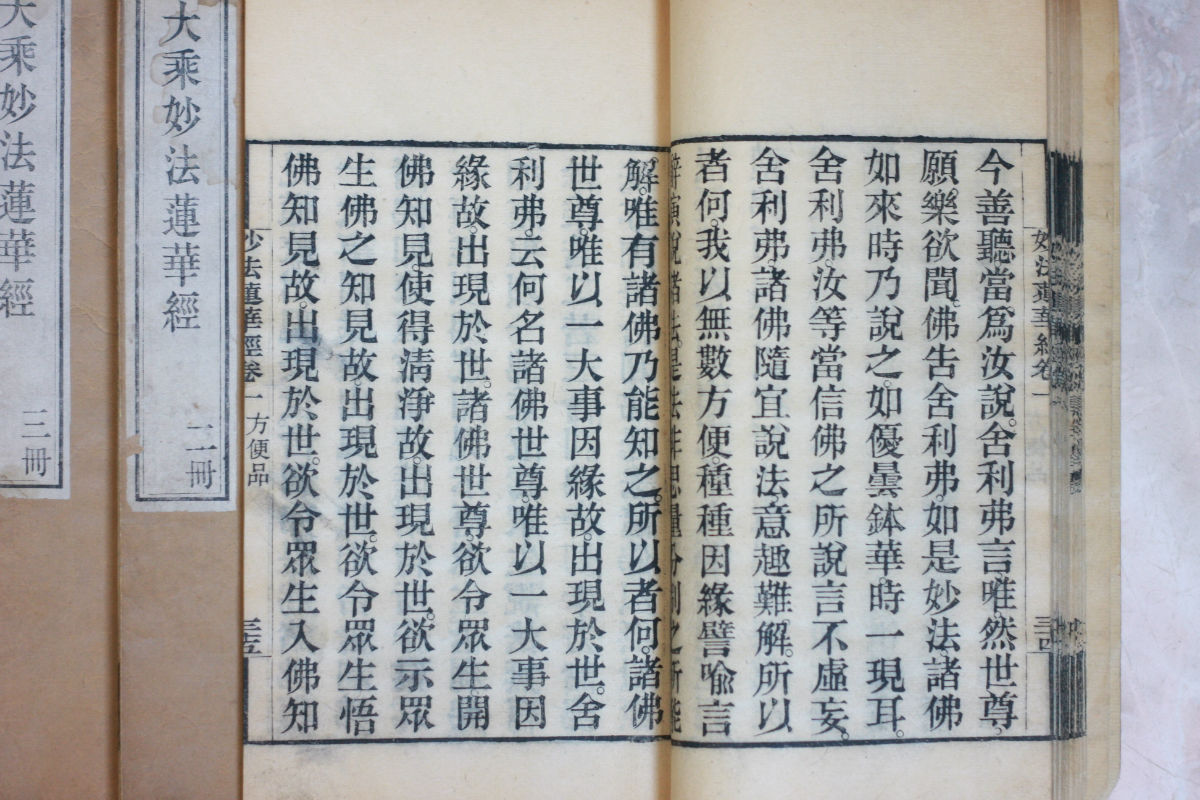 妙法蓮華經卷一
三四
今善聽當爲汝說。舍利弗言唯然世尊。
願樂欲聞。佛告舍利弗。如是妙法諸佛
如來時乃說之。如優曇鉢華時一現耳。
舍利弗汝等當信佛之所說言不虛妄。
舍利弗。諸佛隨宜說法意趣難解。所以
者何。我以無數方便。種種因緣譬喻言
辭演說諸法是法非思量分別之所能
解。唯有諸佛乃能知之。所以者何。諸佛
世尊。唯以一大事因緣故。出現於世。舍
利弗。云何名諸佛世尊。唯以一大事因
緣故。出現於世。諸佛世尊。欲令眾生。開
佛知見。使得清淨故。出現於世。欲示眾
生佛之知見故。出現於世。欲令眾生悟
佛知見故。出現於世。欲令眾生入佛知
妙法蓮華經卷一
方便品
三五
大乘妙法蓮華經
二冊
大乘妙法蓮華經
三冊